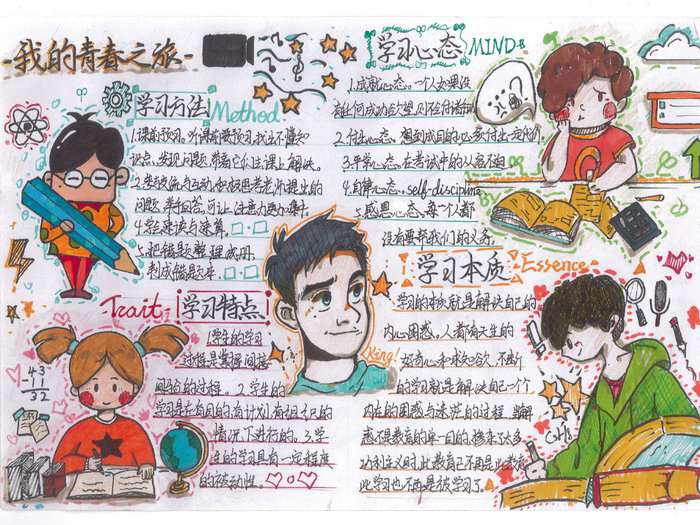 -我的青春之旅-
学习方法 Method
1.课前预习。听课前要预习,找出不懂知
识点、发现问题,带着它们在课上解决。
2.老师互动,积极思考老师提出的
问题,举手回答,可让注意力更加集中。
4.学会速读与速算。
5.把错题整理成册,
制成错题本。
学习心态 MIND
1.成就心态。一个人如果没
有任何成功欲望,
2.付出心态,想到成目的必要付出一定代价
3.平常心态,在考试中的从容不迫
4.自律心态。self-discipline
5.感恩心态。每一个人都
没有要帮我们的义务。
Trait 学习特点
1.学生的学习
过程是掌握间接
经验的过程。2.学生的
学习是在有目的有计划有组织的
情况下进行的。3.学
生的学习具有一定程度
的被动性。
43
-11
32
King!
学习本质 Essence
学习的本质就是解决自己的
内心困惑。人都有天生的
好奇心和求知欲,不断
的学习就是解决自己一个个
内在的困惑与迷茫的过程,
惑不是教育的单一目的,掺杂了太多
功利主义时,此教育已不再是此教育
此学习也不再是彼学习了。